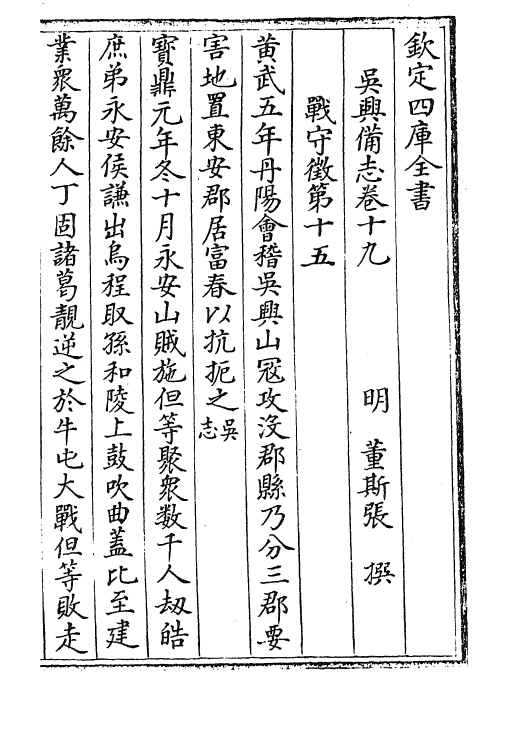 欽定四庫全書
吳興備志卷十九
明 董斯張 撰
戰守徵第十五
黄武五年丹陽會稽吳興山冦攻沒郡縣乃分三郡要
害地置東安郡居富春以抗扼之吳志
寶鼎元年冬十月永安山賊施但等聚衆数千人刼皓
庶弟永安侯謙出烏程取孫和陵上鼓吹曲蓋比至建
業衆萬餘人丁固諸葛靚逆之於牛屯大戰但等敗走